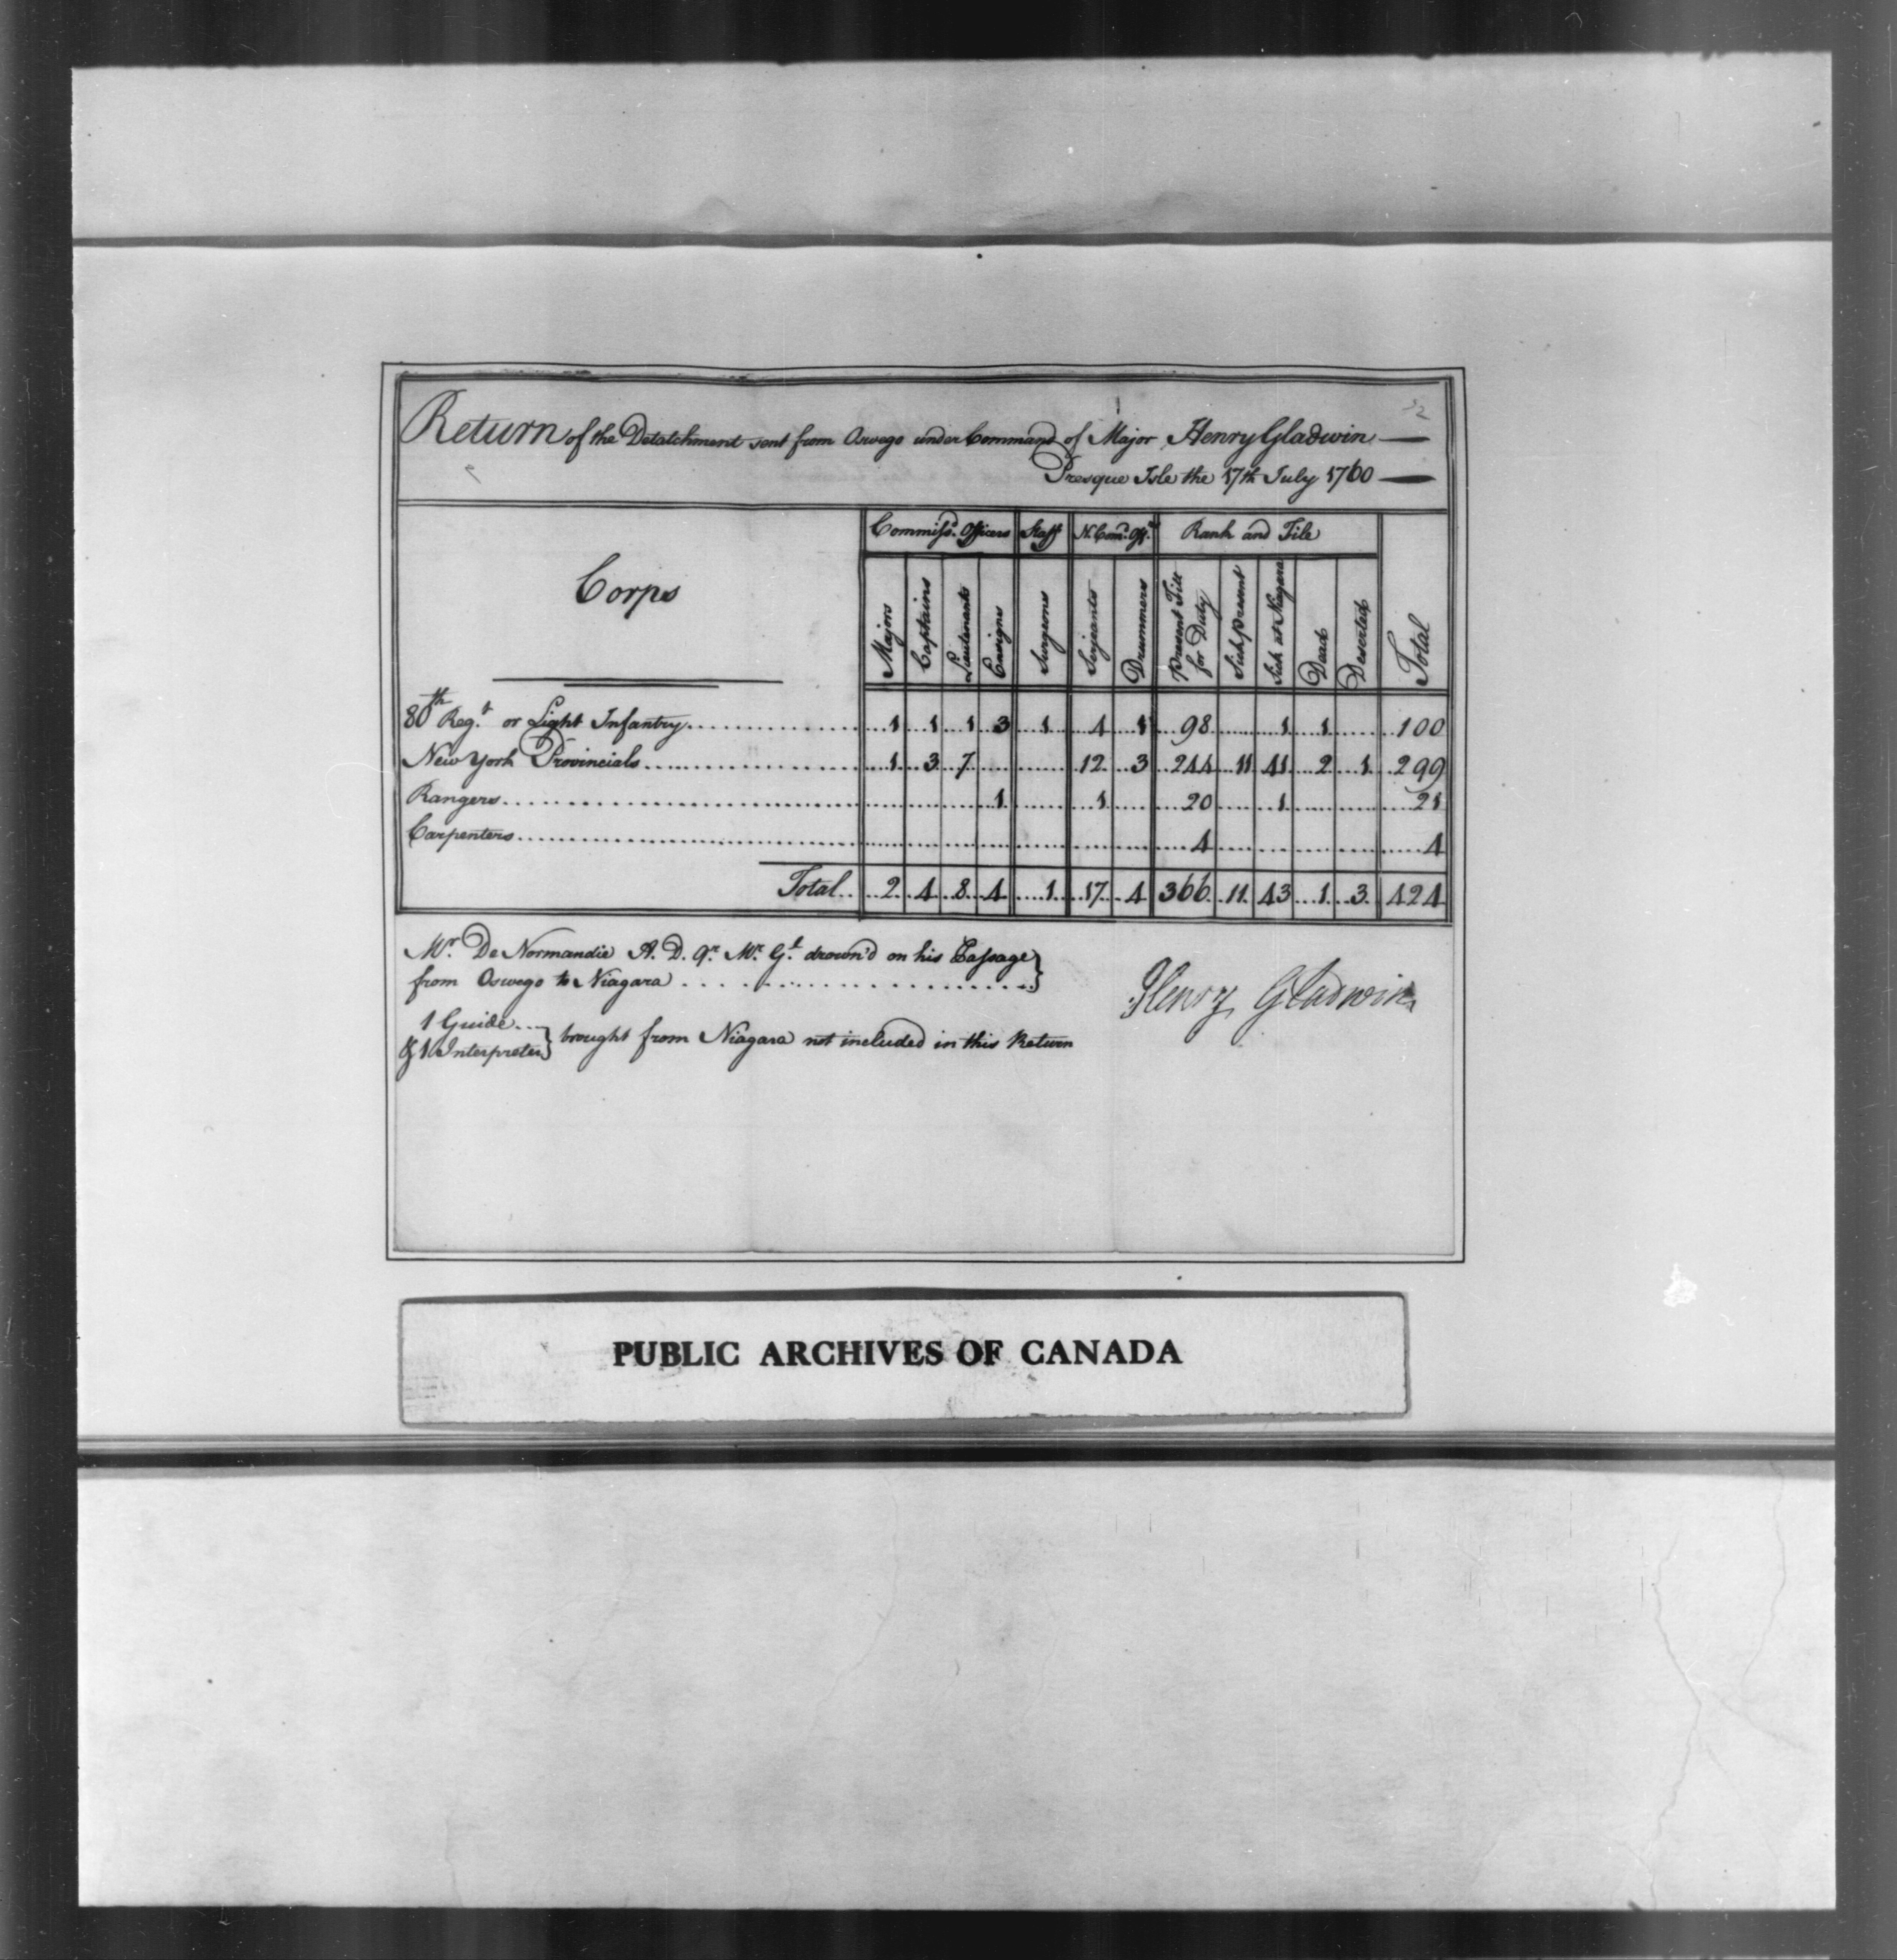 Return of the Detatchment sent from Oswego under Command of Major Henry Gladwin —
Presque Isle the 17th July 1760 —
Corps
Commiss.d Officers Staff N. Com.d Off.rs Rank and File
Majors Captains Lieutenants Ensigns Surgeons Serjeants Drummers Present Fitt for Duty Sick Present Sick at Niagara Dead Deserted Total
80th Reg.t or Light Infantry 1 1 1 3 1 4 1 98 1 1 100
New York Provincials 1 3 7 12 3 244 11 41 2 1 299
Rangers 1 1 20 1 21
Carpenters 4 4
Total 2 4 8 4 1 17 4 366 11 43 1 3 424
Mr. De Normandie A. D. Qr. Mr. Gl. drown'd on his Passage
from Oswego to Niagara
1 Guide
& 1 Interpreter } brought from Niagara not included in this Return
Henry Gladwin
PUBLIC ARCHIVES OF CANADA